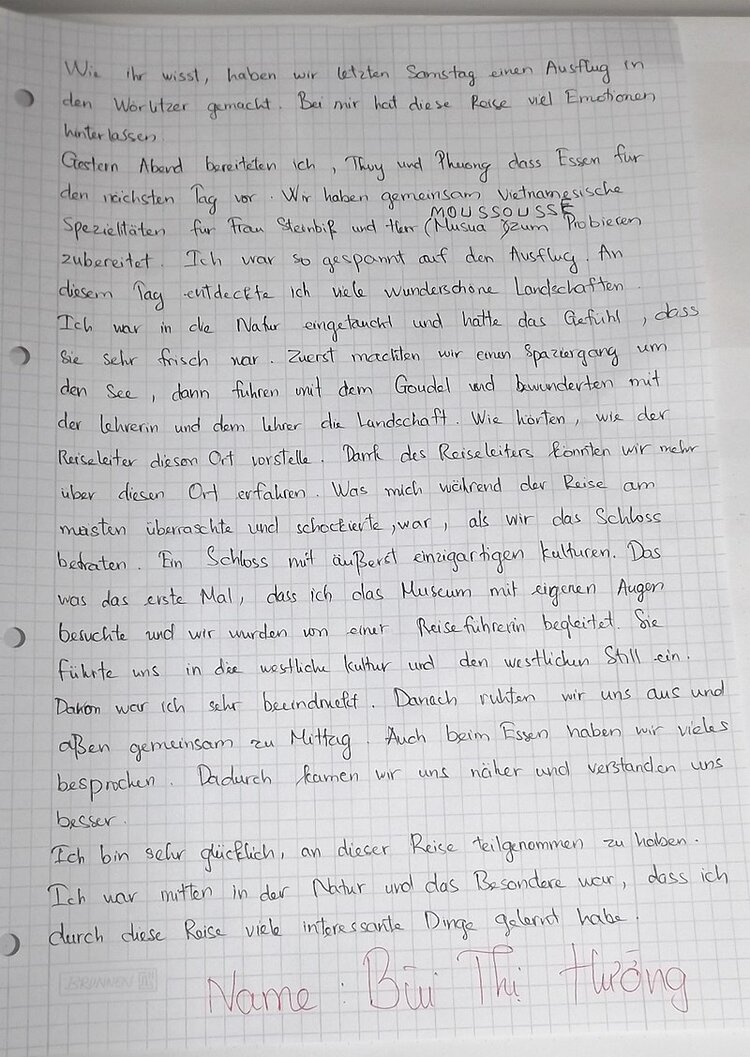 Wie ihr wisst, haben wir letzten Samstag einen Ausflug in
den Wörlitzer gemacht. Bei mir hat diese Reise viel Emotionen
hinterlassen.
Gestern Abend bereiteten ich, Thuy und Phuong dass Essen für
den nächsten Tag vor. Wir haben gemeinsam Vietnamesische
MOUSSOUSSE
Spezielitäten für Frau Steinbiß und Herr (Musua) zum Probieren
zubereitet. Ich war so gespannt auf den Ausflug. An
diesem Tag entdeckte ich viele wunderschöne Landschaften.
Ich war in die Natur eingetaucht und hatte das Gefühl, dass
Sie sehr frisch war. Zuerst machten wir einen Spaziergang um
den See, dann fuhren mit dem Goudel und bewunderten mit
der Lehrerin und dem Lehrer die Landschaft. Wie hörten, wie der
Reiseleiter diesen Ort vorstelle. Dank des Reiseleiters könnten wir mehr
über diesen Ort erfahren. Was mich während der Reise am
meisten überraschte und schockierte, war, als wir das Schloss
betraten. Ein Schloss mit äußerst einzigartigen kulturen. Das
was das erste Mal, dass ich das Museum mit eigenen Augen
besuchte und wir wurden von einer Reiseführerin begleitet. Sie
führte uns in die westliche kultur und den westlichen Still ein.
Davon war ich sehr beeindruckt. Danach ruhten wir uns aus und
aßen gemeinsam zu Mittag. Auch beim Essen haben wir vieles
besprochen. Dadurch kamen wir uns näher und verstanden uns
besser.
Ich bin sehr glücklich, an dieser Reise teilgenommen zu haben.
Ich war mitten in der Natur und das Besondere war, dass ich
durch diese Reise viele interessante Dinge gelernt habe.
BRUNNEN
Name : Bùi Thị Hường